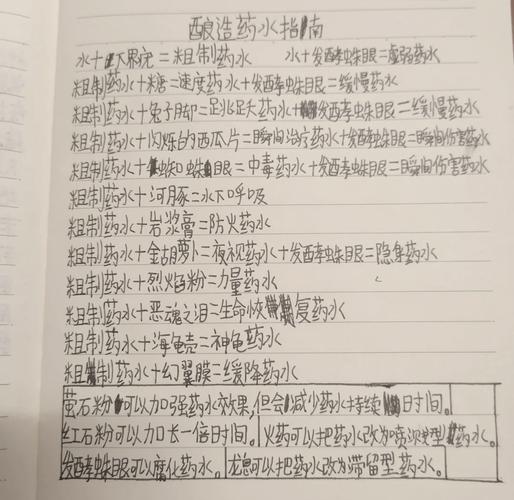 酿造药水指南
水+下界疣=粗制药水 水+发酵蛛眼=虚弱药水
粗制药水+糖=速度药水+发酵蛛眼=缓慢药水
粗制药水+兔子脚=跳跃药水+发酵蛛眼=缓慢药水
粗制药水+闪烁的西瓜片=瞬间治疗药水+发酵蛛眼=瞬间伤害药水
粗制药水+蜘蛛眼=中毒药水+发酵蛛眼=瞬间伤害药水
粗制药水+河豚=水下呼吸
粗制药水+岩浆膏=防火药水
粗制药水+金胡萝卜=夜视药水+发酵蛛眼=隐身药水
粗制药水+烈焰粉=力量药水
粗制药水+恶魂之泪=生命恢复药水
粗制药水+海龟壳=神龟药水
粗制药水+幻翼膜=缓降药水
萤石粉可以加强药水效果,但会减少药水持续时间。
红石粉可以加长一倍时间。火药可以把药水改为喷溅型药水。
发酵蛛眼可以腐化药水。龙息可以把药水改为滞留型药水。